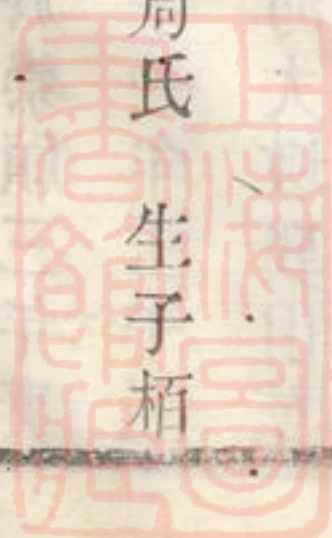 周氏 生子栢
上海圖書館藏